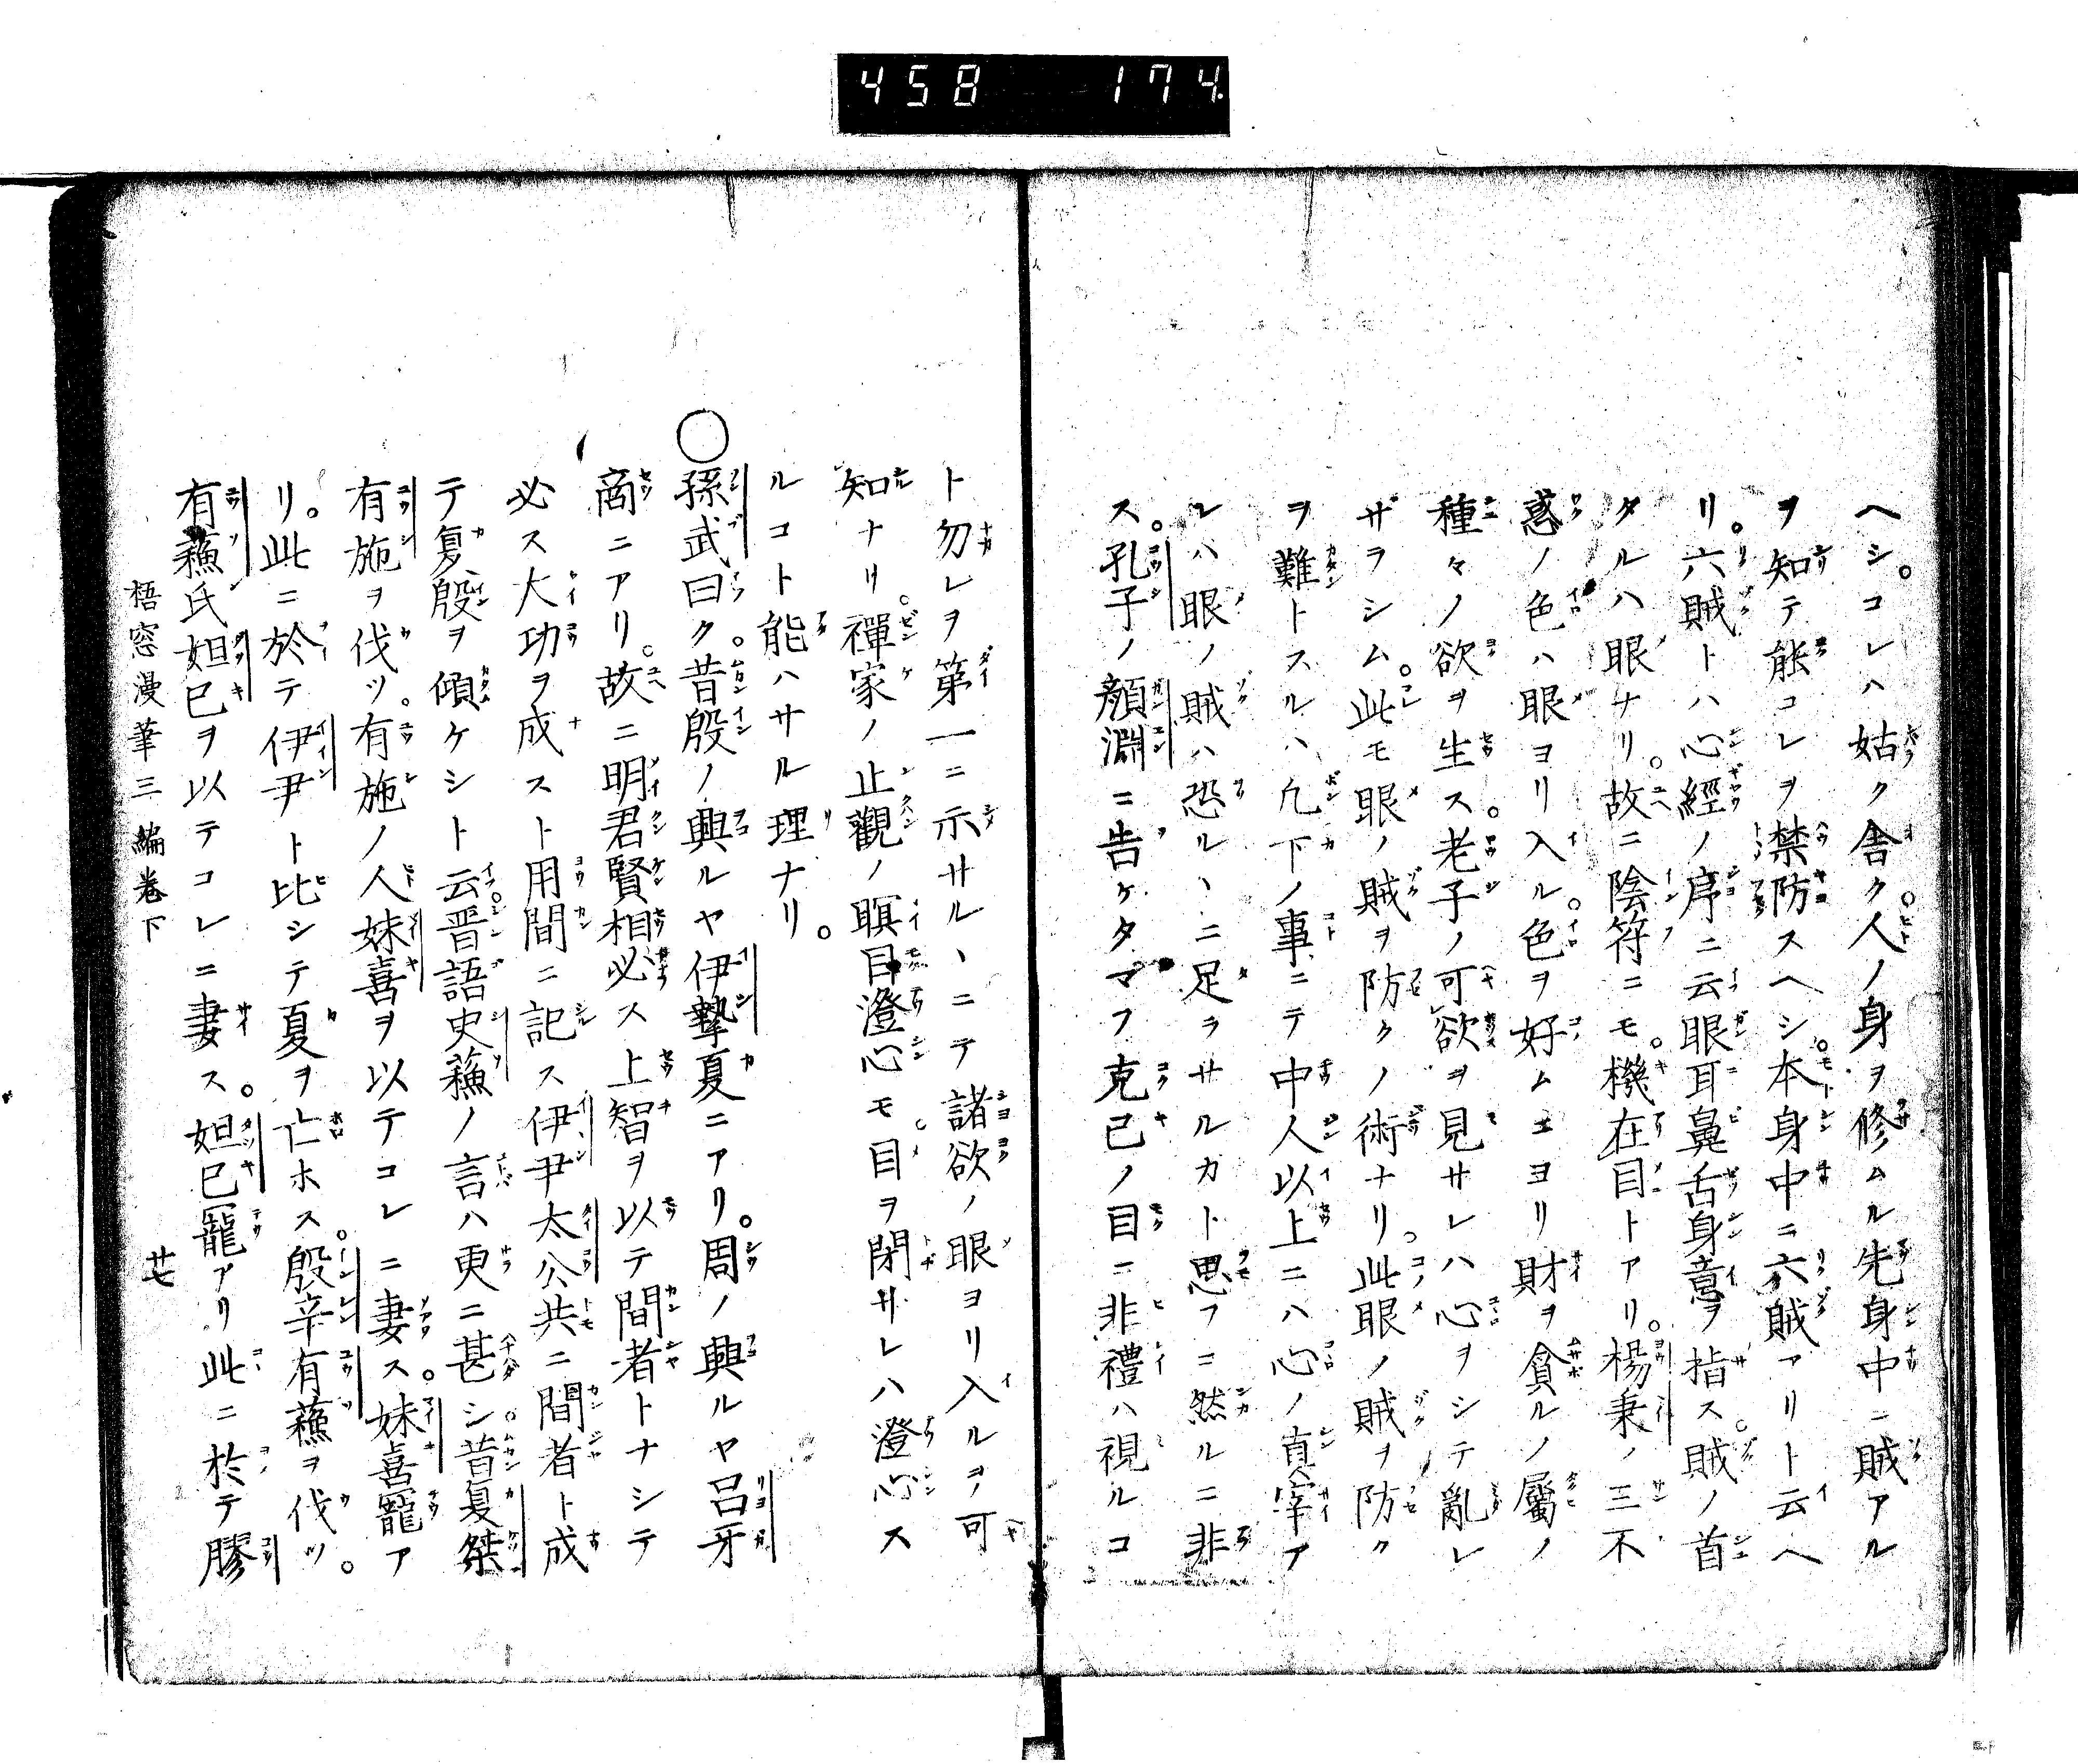 458 174
ヘシ。コレハ姑ク舎ク。人ノ身ヲ修ムル先身中ニ賊アル
ヲ知テ能コレヲ禁防スヘシ。本身中ニ六賊アリト云ヘ
リ。六賊トハ心經ノ序ニ云眼耳鼻舌身意ヲ指ス。賊ノ首
タルハ眼ナリ。故ニ陰符ニモ。機在目トアリ。楊秉ノ三不
惑ノ色ハ眼ヨリ入ル。色ヲ好ムエヨリ財ヲ貪ルノ屬ノ
種々ノ欲ヲ生ス。老子ノ可欲ヲ見サレハ心ヲシテ亂レ
ザラシム。此モ眼ノ賊ヲ防クノ術ナリ。此眼ノ賊ヲ防ク
ヲ難トスルハ凢下ノ事ニテ中人以上ニハ心ノ真宰ア
レハ眼ノ賊ハ恐ルヽニ足ラサルカト思フニ然ルニ非
ス。孔子ノ顔淵ニ告ケタマフ克己ノ目ニ非禮ハ視ルコ
ト勿レヲ第一ニ示サルヽニテ諸欲ノ眼ヨリ入ルヲ可
知ナリ。禪家ノ止觀ノ瞑目澄心モ。目ヲ閉サレハ澄心ス
ルコト能ハサル理ナリ。
○孫武曰ク。昔殷ノ興ルヤ伊摯夏ニアリ。周ノ興ルヤ呂牙
商ニアリ。故ニ明君賢相必ス上智ヲ以テ間者トナシテ
必ス大功ヲ成スト用間ニ記ス伊尹太公共ニ間者ト成
テ夏殷ヲ傾ケシト云。晋語史蘓ノ言ハ更ニ甚シ。昔夏桀
有施ヲ伐ツ。有施ノ人妹喜ヲ以テコレニ妻ス。妹喜寵ア
リ。此ニ於テ伊尹ト比シテ夏ヲ亡ホス。殷辛有蘓ヲ伐ツ。
有蘓氏妲已ヲ以テコレニ妻ス。妲已寵アリ此ニ於テ膠
梧窓漫筆三編巻下 廿七